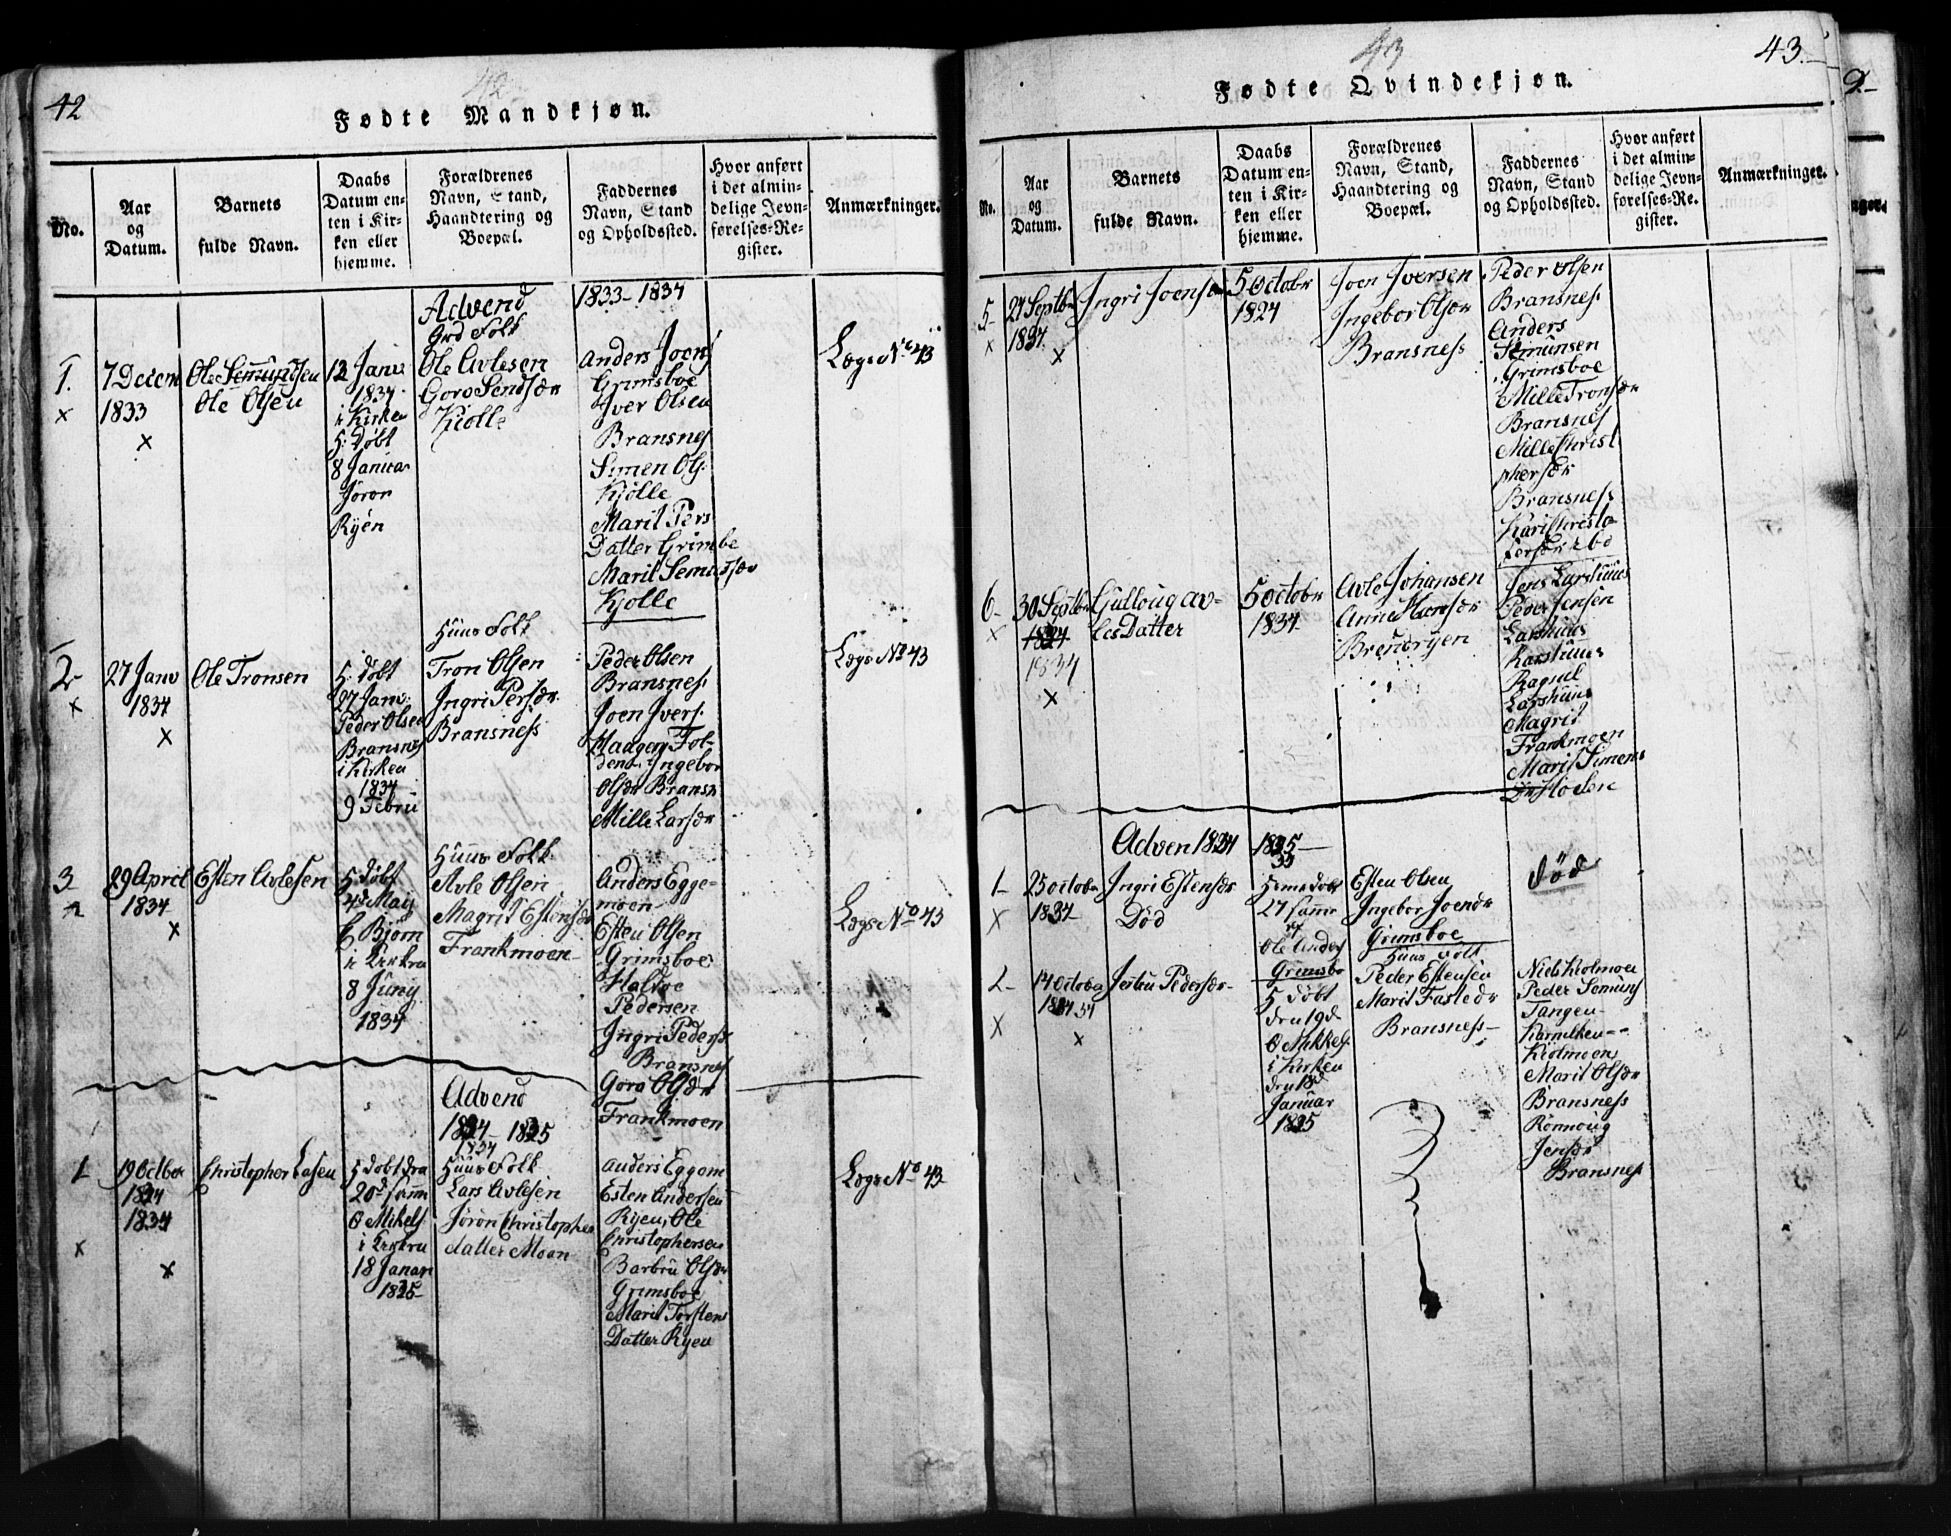 42
42
Fødte Mandkjøn.
No.
Aar
og
Datum.
Barnets
fulde Navn.
Daabs
Datum en-
ten i Kir-
ken eller
hjemme.
Forældrenes
Navn, Stand,
Haandtering og
Boepæl.
Faddernes
Navn, Stand
og Opholdssted.
Hvor anført
i det almin-
delige Jevn-
førelses-Re-
gister.
Anmærkninger.
Advend
1833-1834
1.
7 Decem
1833
Ole Semundsen
Ole Olsen
12 Janv
1834
i Kirken
H: Døbt
8 Januar
Jøron
Ryen
Grd Folk
Ole Avlesen
Goro Sendsdr
Kiølle
Anders Joens
Grimsboe
Jver Olsen
Bransnes
Simen Ols.
Kjølle
Marit Pers
Datter Grimbe
Marit Semunsdr
Kjølle
Lægs No 43
2
27 Janv
1834
Ole Tronsen
H: døbt
27 Janv:
Peder Olsen
Bransnes
i Kirken
1834
9 Febru
Huus Folk
Tron Olsen
Jngri Persdr
Bransness
Peder Olsen
Bransnes
Joen Jvers.
Haagen Fol-
den. Jngebor
Olsdr Bransn
Mille Larsdr
Lægs No 43
3
29 April
1834
Esten Avlesen
H: døbt
4de Maij
Ø Bjørn
i Kirken
8 Junij
1834
Huus Folk
Avle Olsen
Magrit Estensdr
Frankmoen
Anders Egge-
moen
Esten Olsen
Grimsboe
Haldoe
Pedersen
Jngri Peders
Bransnes
Goro Olsdr
Frankmoen
Lægs No 43
Advend
1834-1835
1834
1
19 Octbor
1834
1834
Christopher Lasen
H døbt dra
20d samm
O Mikels
i Kirken
18 Janar
1835
Huus Folk
Lars Avlesen
Jøron Christopher
datter Moen
Anders Eggem
Esten Andersen
Ryen, Ole
Christophersen
Barbru Olsdr
Grimsboe
Marit Torstens
Datter Ryen
Lægs No 43
43
43.
Fødte Qvindekjøn.
No.
Aar
og
Datum.
Barnets
fulde Navn.
Daabs
Datum en-
ten i Kir-
ken eller
hjemme.
Forældrenes
Navn, Stand,
Haandtering og
Boepæl.
Faddernes
Navn, Stand
og Opholdssted.
Hvor anført
i det almin-
delige Jevn-
førelses-Re-
gister.
Anmærkninger.
5
24 Septbr
1834
Jngri Joensdr
5 Octobr
1824
Joen Jversen
Jngebor Olsdr
Bransness
Peder Olsen
Bransnes
Anders
Semunsen
Grimsboe
Mille Tronsdr
Bransnes
Mille Christ
phersdr
Bransness
Kari Christo
fersdr ibd
6
30 Septbr
1824
1834
Gulloug Av-
lesDatter
5 Octobr
1834
Avle Johansen
Anne Hansdr
Brendryen
Jens Larshuus
Peder Jensen
Larshuus
Larshuus
Ragnil
Larshuus
Magrit
Frankmoen
Marit Simens
Dr Moelen
Adven 1834
1835
35
1
25 Octobr
1834
Jngri Estensdr
Død
Hjemdøbt
27 samme
Ole Anders
Grimsbo
Esten Olsen
Jngebor Joendr
Grimsboe
død
2
14 Octobr
1834 34
Jertru Pedersdr
H døbt
den 19d
O Mikkels.
i Kirken
den 18d
Januar
1835
Huus Folk
Peder Estensen
Marit Fastedr
Bransness
Niels Kiolmoen
Peder Semuns
Tangen
Kiølmoen
Marit Olsdr
Bransness
Rønnoug
Jensdr
Bransnes